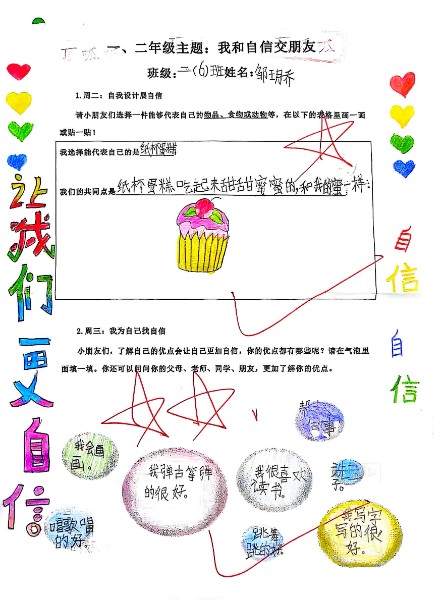 一、二年级主题：我和自信交朋友
班级：二(6)班姓名：邹玥乔
1.周二：自我设计展自信
请小朋友们选择一件能够代表自己的物品、食物或动物等，在以下的表格里画一画
或贴一贴！
我选择能代表自己的是纸杯蛋糕
我们的共同点是纸杯蛋糕吃起来甜甜蜜蜜的,和我的蜜一样
2.周三：我为自己找自信
小朋友们，了解自己的优点会让自己更加自信，你的优点都有那些呢？请在气泡里
面填一填。你还可以问问你的父母、老师、同学、朋友，更加了解你的优点。
我会画
画。
我弹古筝弹
的很好。
我很喜欢
读书。
唱歌唱
的好。
跳舞
跳的好。
我写字
写的很
好。
让我们更自信
自信
自信